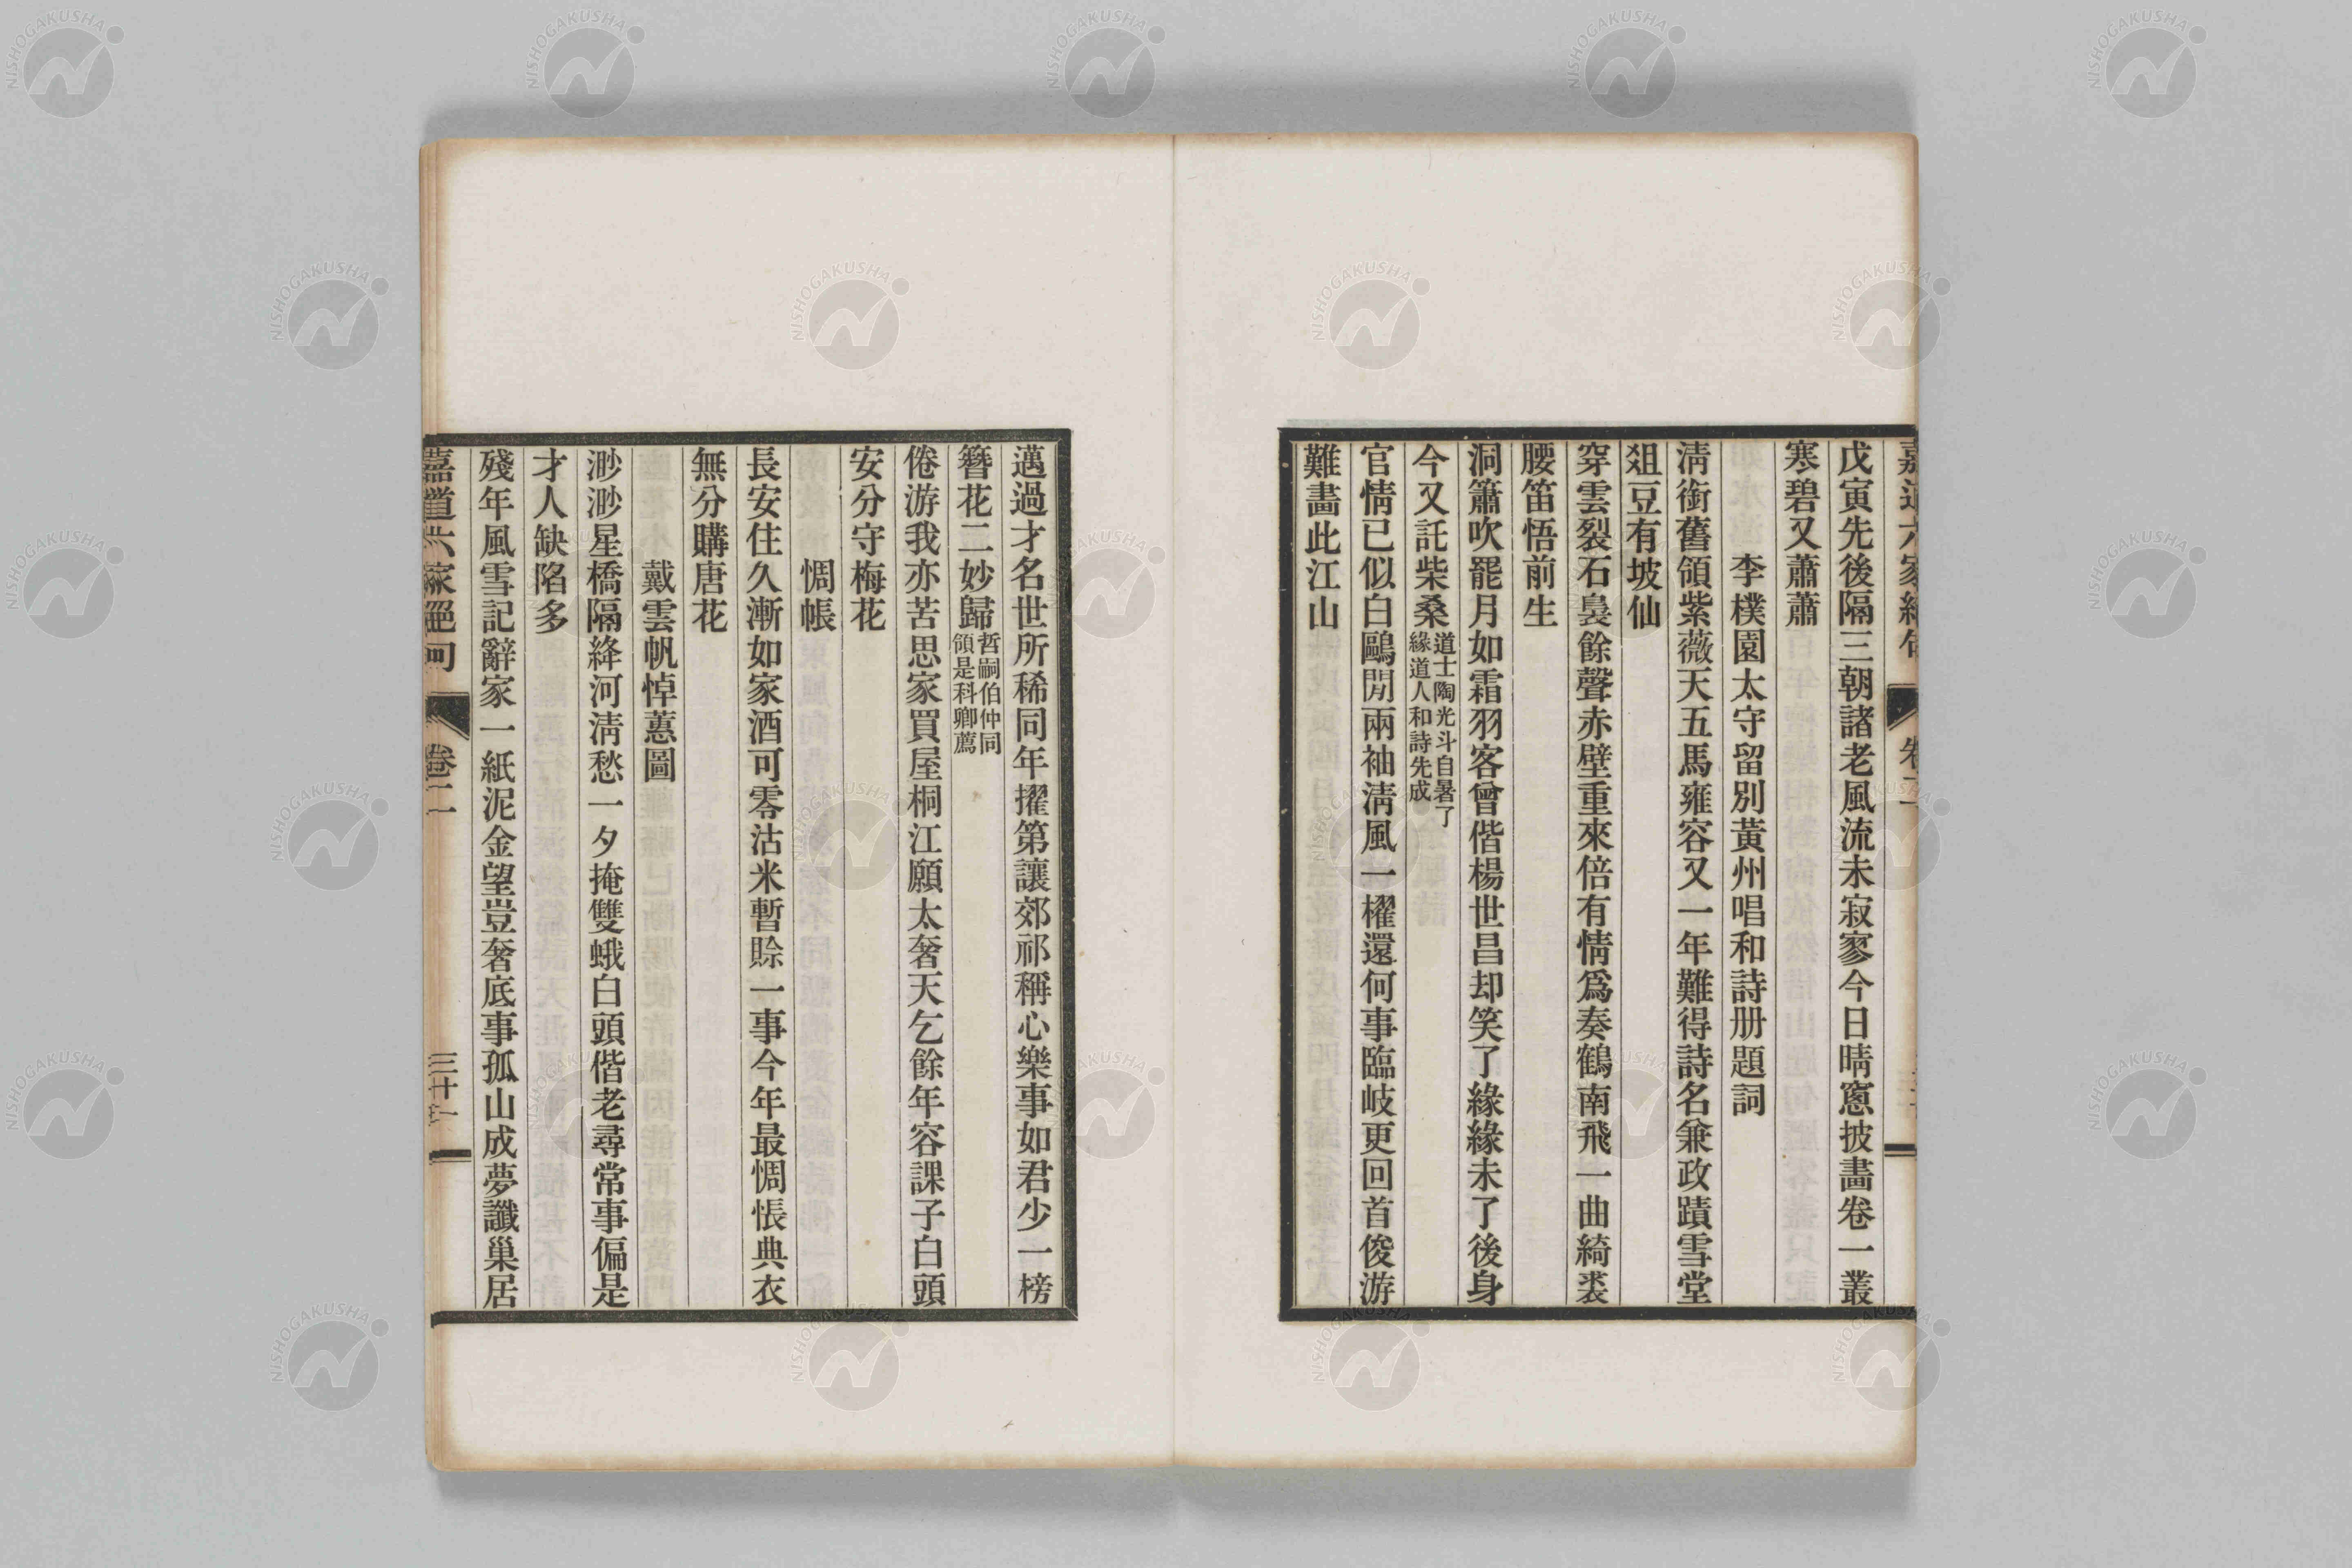 戊寅先後隔三朝諸老風流未寂寥今日晴窻披畫卷一叢
寒碧又蕭蕭
李樸園太守留別黃州唱和詩册題詞
淸銜舊領紫薇天五馬雍容又一年難得詩名兼政蹟雪堂
俎豆有坡仙
穿雲裂石裊餘聲赤壁重來倍有情爲奏鶴南飛一曲綺裘
腰笛悟前生
洞簫吹罷月如霜羽客曾偕楊世昌却笑了緣緣未了後身
今又託柴桑道士陶光斗自署了
緣道人和詩先成
官情已似白鷗閒兩袖淸風一櫂還何事臨岐更回首俊游
難畫此江山
邁過才名世所稀同年擢第讓郊祁稱心樂事如君少一榜
簪花二妙歸哲嗣伯仲同
領是科鄉薦
倦游我亦苦思家買屋桐江願太奢天乞餘年容課子白頭
安分守梅花
惆帳
長安住久漸如家酒可零沽米暫賒一事今年最惆悵典衣
無分購唐花
戴雲帆悼蕙圖
渺渺星橋隔絳河淸愁一夕掩雙蛾白頭偕老尋常事偏是
才人缺陷多
殘年風雪記辭家一紙泥金望豈奢底事孤山成夢讖巢居
嘉道六家絕句
卷二
三十一
NISHOGAKUSHA